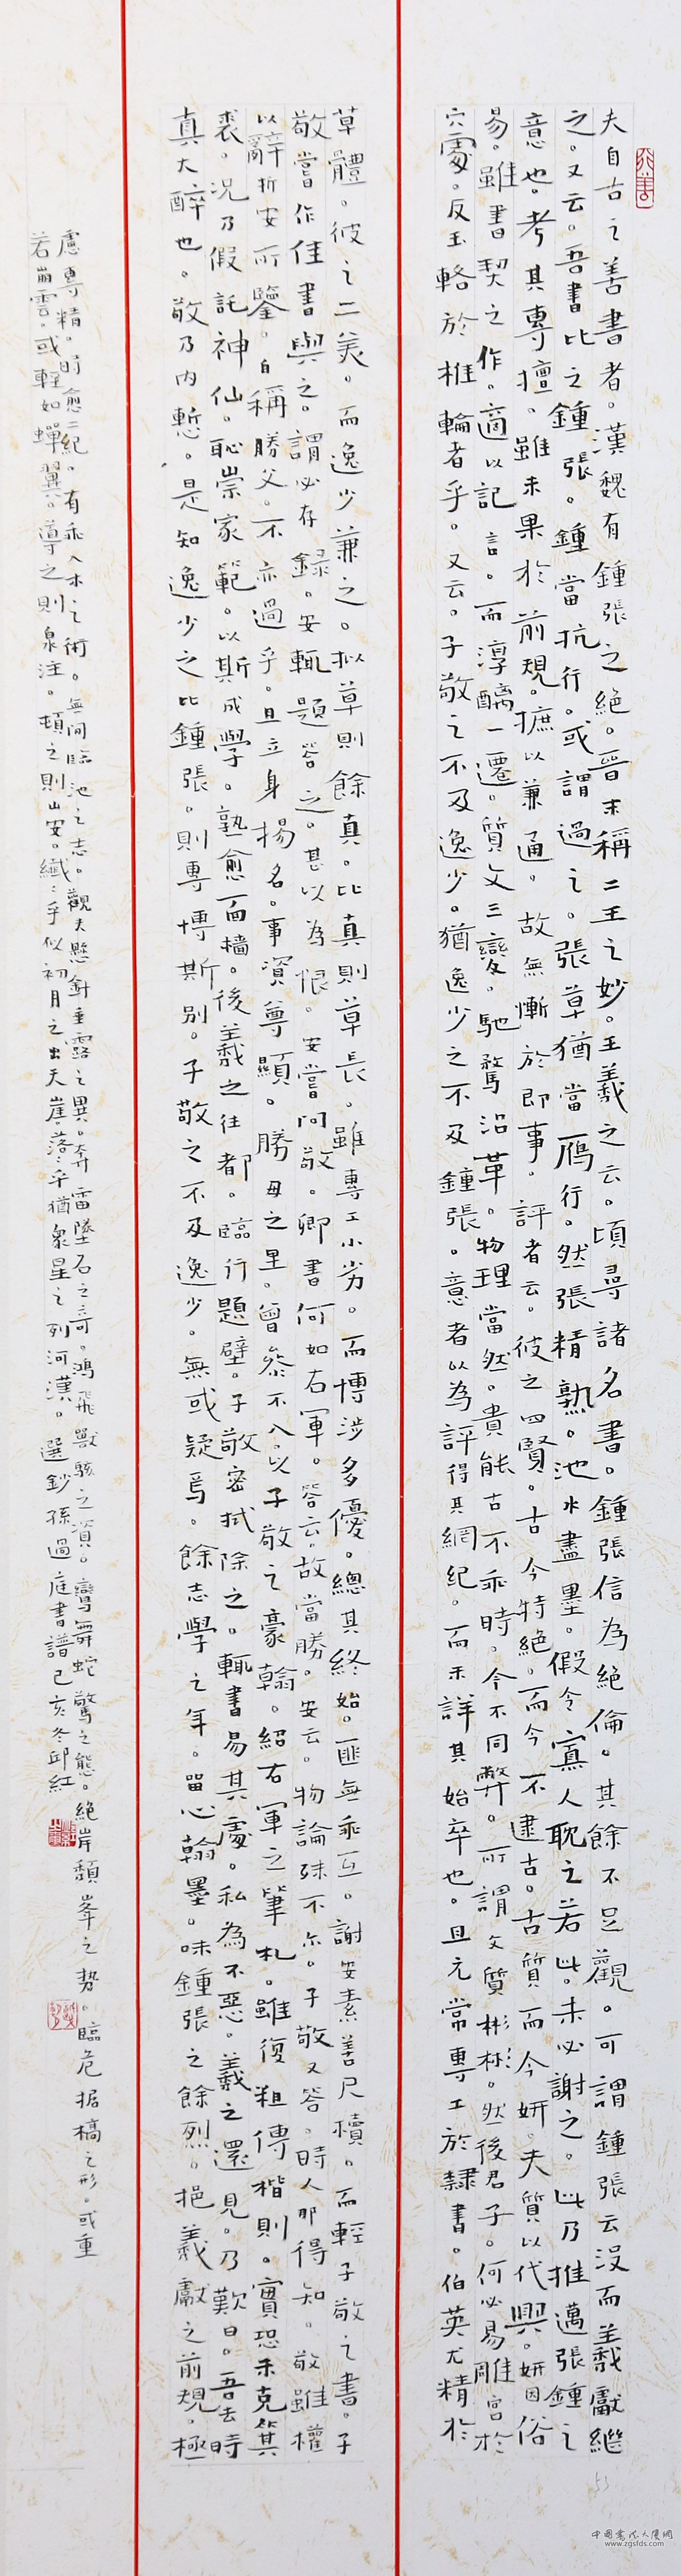 夫自古之善書者。漢魏有鍾張之絕。晉末稱二王之妙。王羲之云。頃尋諸名書。鍾張信為絕倫。其餘不足觀。可謂鍾張云沒而羲獻繼
之。又云。吾書比之鍾張。鍾當抗行。或謂過之。張草猶當鴈行。然張精熟。池水盡墨。假令寡人耽之若此。未必謝之。此乃推邁張鍾之
意也。考其專擅。雖未果於前規。摭以兼通。故無慚於即事。評者云。彼之四賢。古今特絕。而今不逮古。古質而今妍。夫質以代興。妍因俗
易。雖書契之作。適以記言。而淳醨一遷。質文三變。馳騖沿革。物理當然。貴能古不乖時。今不同弊。所謂文質彬彬。然後君子。何必易雕宮於
穴處。反玉輅於椎輪者乎。又云。子敬之不及逸少。猶逸少之不及鍾張。意者以為評得其綱紀。而未詳其始卒也。且元常專工於隸書。伯英尤精於
草體。彼之二美。而逸少兼之。擬草則餘真。比真則草長。雖專工小劣。而博涉多優。總其終始。匪無乖互。謝安素善尺牘。而輕子敬之書。子
敬嘗作佳書與之。謂必存錄。安輒題答之。甚以為恨。安嘗問敬。卿書何如右軍。答云。故當勝。安云。物論殊不尔。子敬又答。時人那得知。敬雖權
以辭折安所鑒。自稱勝父。不亦過乎。且立身揚名。事資尊顯。勝母之里。曾參不入。以子敬之豪翰。紹右軍之筆札。雖復粗傳楷則。實恐未克箕
裘。況乃假託神仙。恥崇家範。以斯成學。孰愈面牆。後羲之往都。臨行題壁。子敬密拭除之。輒書易其處。私為不惡。羲之還見。乃歎曰。吾去時
真大醉也。敬乃內慙。是知逸少之比鍾張。則專博斯別。子敬之不及逸少。無或疑焉。餘志學之年。留心翰墨。味鍾張之餘烈。挹羲獻之前規。極
慮專精。時愈二紀。有乖入木之術。無間臨池之志。觀夫懸針垂露之異。奔雷墜石之奇。鴻飛獸駭之資。鸞舞蛇驚之態。絕岸頹峯之勢。臨危據槁之形。或重
若崩雲。或輕如蟬翼。導之則泉注。頓之則山安。纖纖乎似初月之出天崖。落落乎猶衆星之列河漢。選鈔孫過庭書譜己亥冬邱紅
中國書法大廈網
www.zgsfds.com